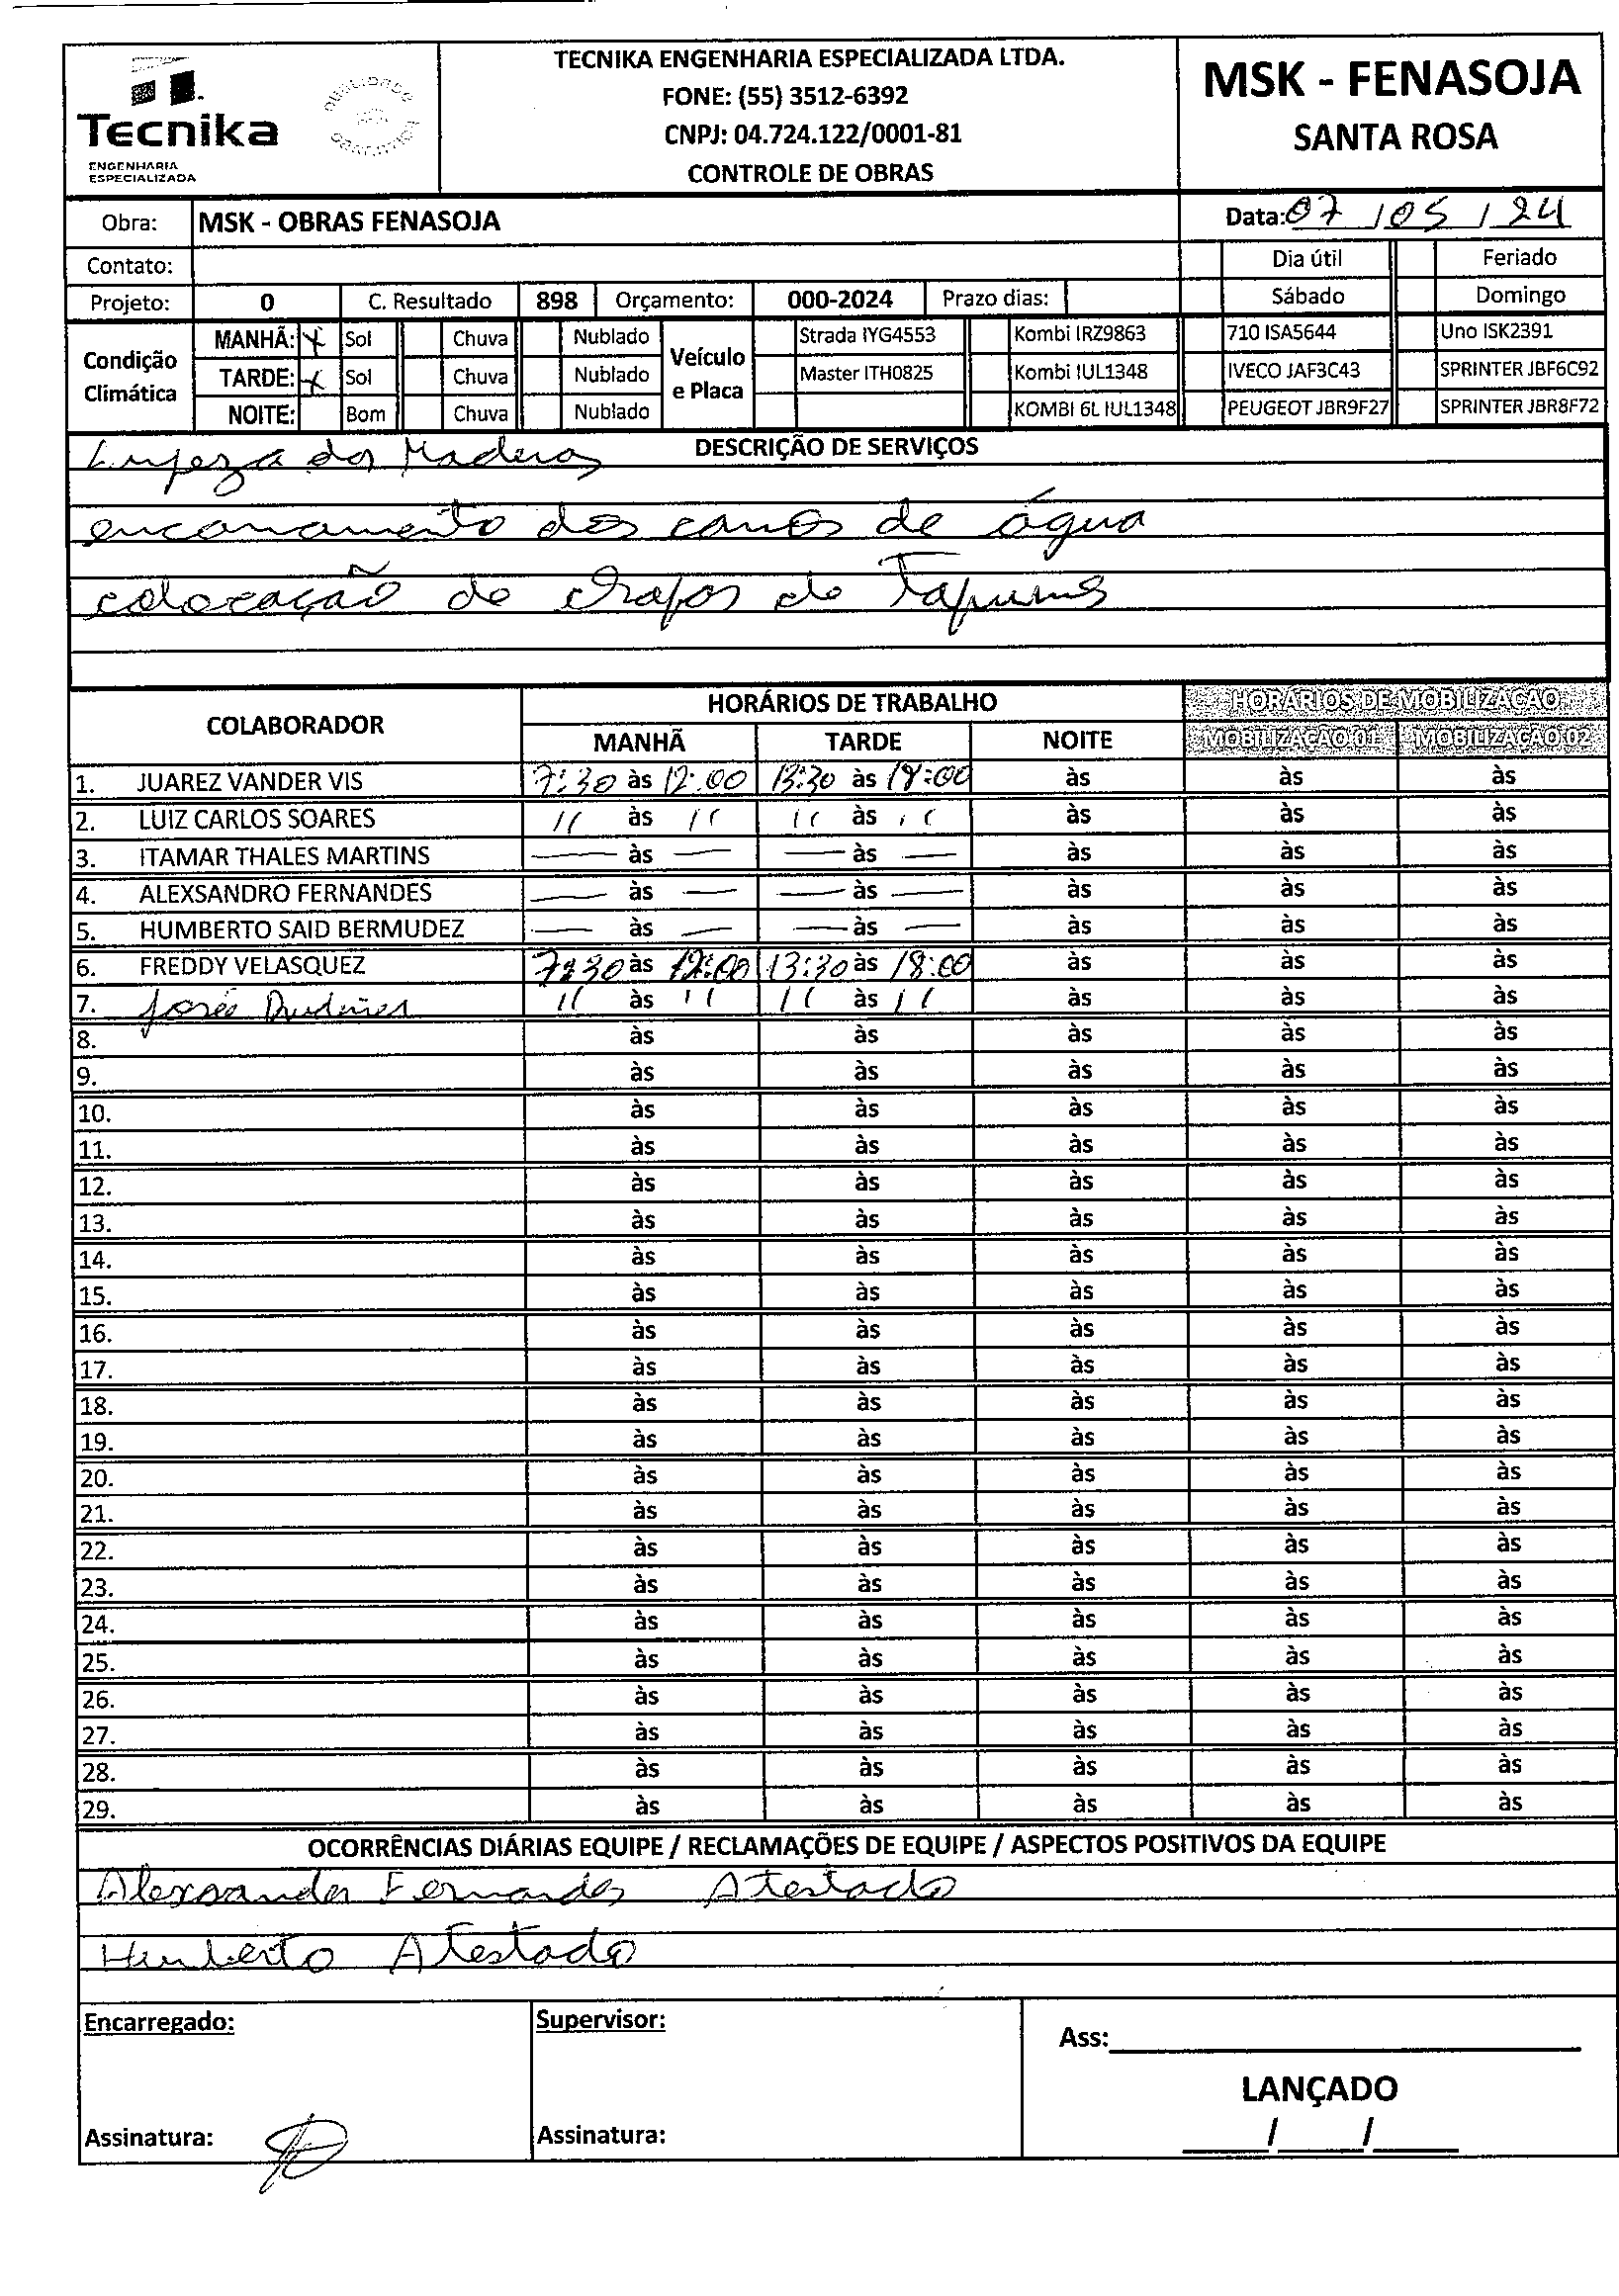 Tecnika
ENGENHARIA
ESPECIALIZADA
TECNIKA ENGENHARIA ESPECIALIZADA LTDA.
FONE: (55) 3512-6392
CNPJ: 04.724.122/0001-81
CONTROLE DE OBRAS
MSK - FENASOJA
SANTA ROSA
Obra: MSK - OBRAS FENASOJA Data: 07 / 05 / 24
Contato: Dia útil Feriado
Projeto: 0 C. Resultado 898 Orçamento: 000-2024 Prazo dias: Sábado Domingo
Condição Climática Veículo e Placa
MANHÃ: X Sol Chuva Nublado Strada IYG4553 Kombi IRZ9863 710 ISA5644 Uno ISK2391
TARDE: X Sol Chuva Nublado Master ITH0825 Kombi IUL1348 IVECO JAF3C43 SPRINTER JBF6C92
NOITE: Bom Chuva Nublado KOMBI 6L IUL1348 PEUGEOT JBR9F27 SPRINTER JBR8F72
DESCRIÇÃO DE SERVIÇOS
dos
encanamento dos canos de água
colocação de do
COLABORADOR HORÁRIOS DE TRABALHO HORÁRIOS DE MOBILIZAÇÃO
MANHÃ TARDE NOITE MOBILIZAÇÃO 01 MOBILIZAÇÃO 02
1. JUAREZ VANDER VIS 7:30 às 12:00 13:30 às 18:00 às às às
2. LUIZ CARLOS SOARES 11 às 11 11 às 11 às às às
3. ITAMAR THALES MARTINS — às — — às — às às às
4. ALEXSANDRO FERNANDES — às — — às — às às às
5. HUMBERTO SAID BERMUDEZ — às — — às — às às às
6. FREDDY VELASQUEZ 7:30 às 12:00 13:30 às 18:00 às às às
7. José 11 às 11 11 às 11 às às às
8. às às às às às
9. às às às às às
10. às às às às às
11. às às às às às
12. às às às às às
13. às às às às às
14. às às às às às
15. às às às às às
16. às às às às às
17. às às às às às
18. às às às às às
19. às às às às às
20. às às às às às
21. às às às às às
22. às às às às às
23. às às às às às
24. às às às às às
25. às às às às às
26. às às às às às
27. às às às às às
28. às às às às às
29. às às às às às
OCORRÊNCIAS DIÁRIAS EQUIPE / RECLAMAÇÕES DE EQUIPE / ASPECTOS POSITIVOS DA EQUIPE
Fernandes Atestado
Humberto Atestado
Encarregado: Supervisor:
Ass:
LANÇADO
Assinatura: Assinatura: / /